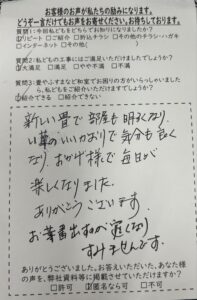 お客様のお声が私たちの励みになります。
どうぞ一言だけでもお声をお寄せください。お待ちしております。
質問1:今回私どもをどちらでお知りになりましたか?
☑リピート □ご紹介 □折込チラシ □その他のチラシ・ハガキ
□インターネット □その他(
質問2:私どもの工事にはご満足いただけましたでしょうか?
☑大満足 □満足 □やや不満 □不満
質問3:畳やふすまなど和室でお困りの方がいらっしゃいましたら、
私どもをご紹介いただけますでしょうか?
☑紹介できる □紹介できない
新しい畳で部屋も明るくなり
い草のいいかおりで気分も良く
なり、おかげ様で毎日が
楽しくなりました。
ありがとうございます
お葉書出すのが遅くなり
すみませんです。
ありがとうございました。お答えいただいた、あなた様
の声を、弊社資料等に掲載させていただけますか?
□許可 ☑匿名なら可 □不可